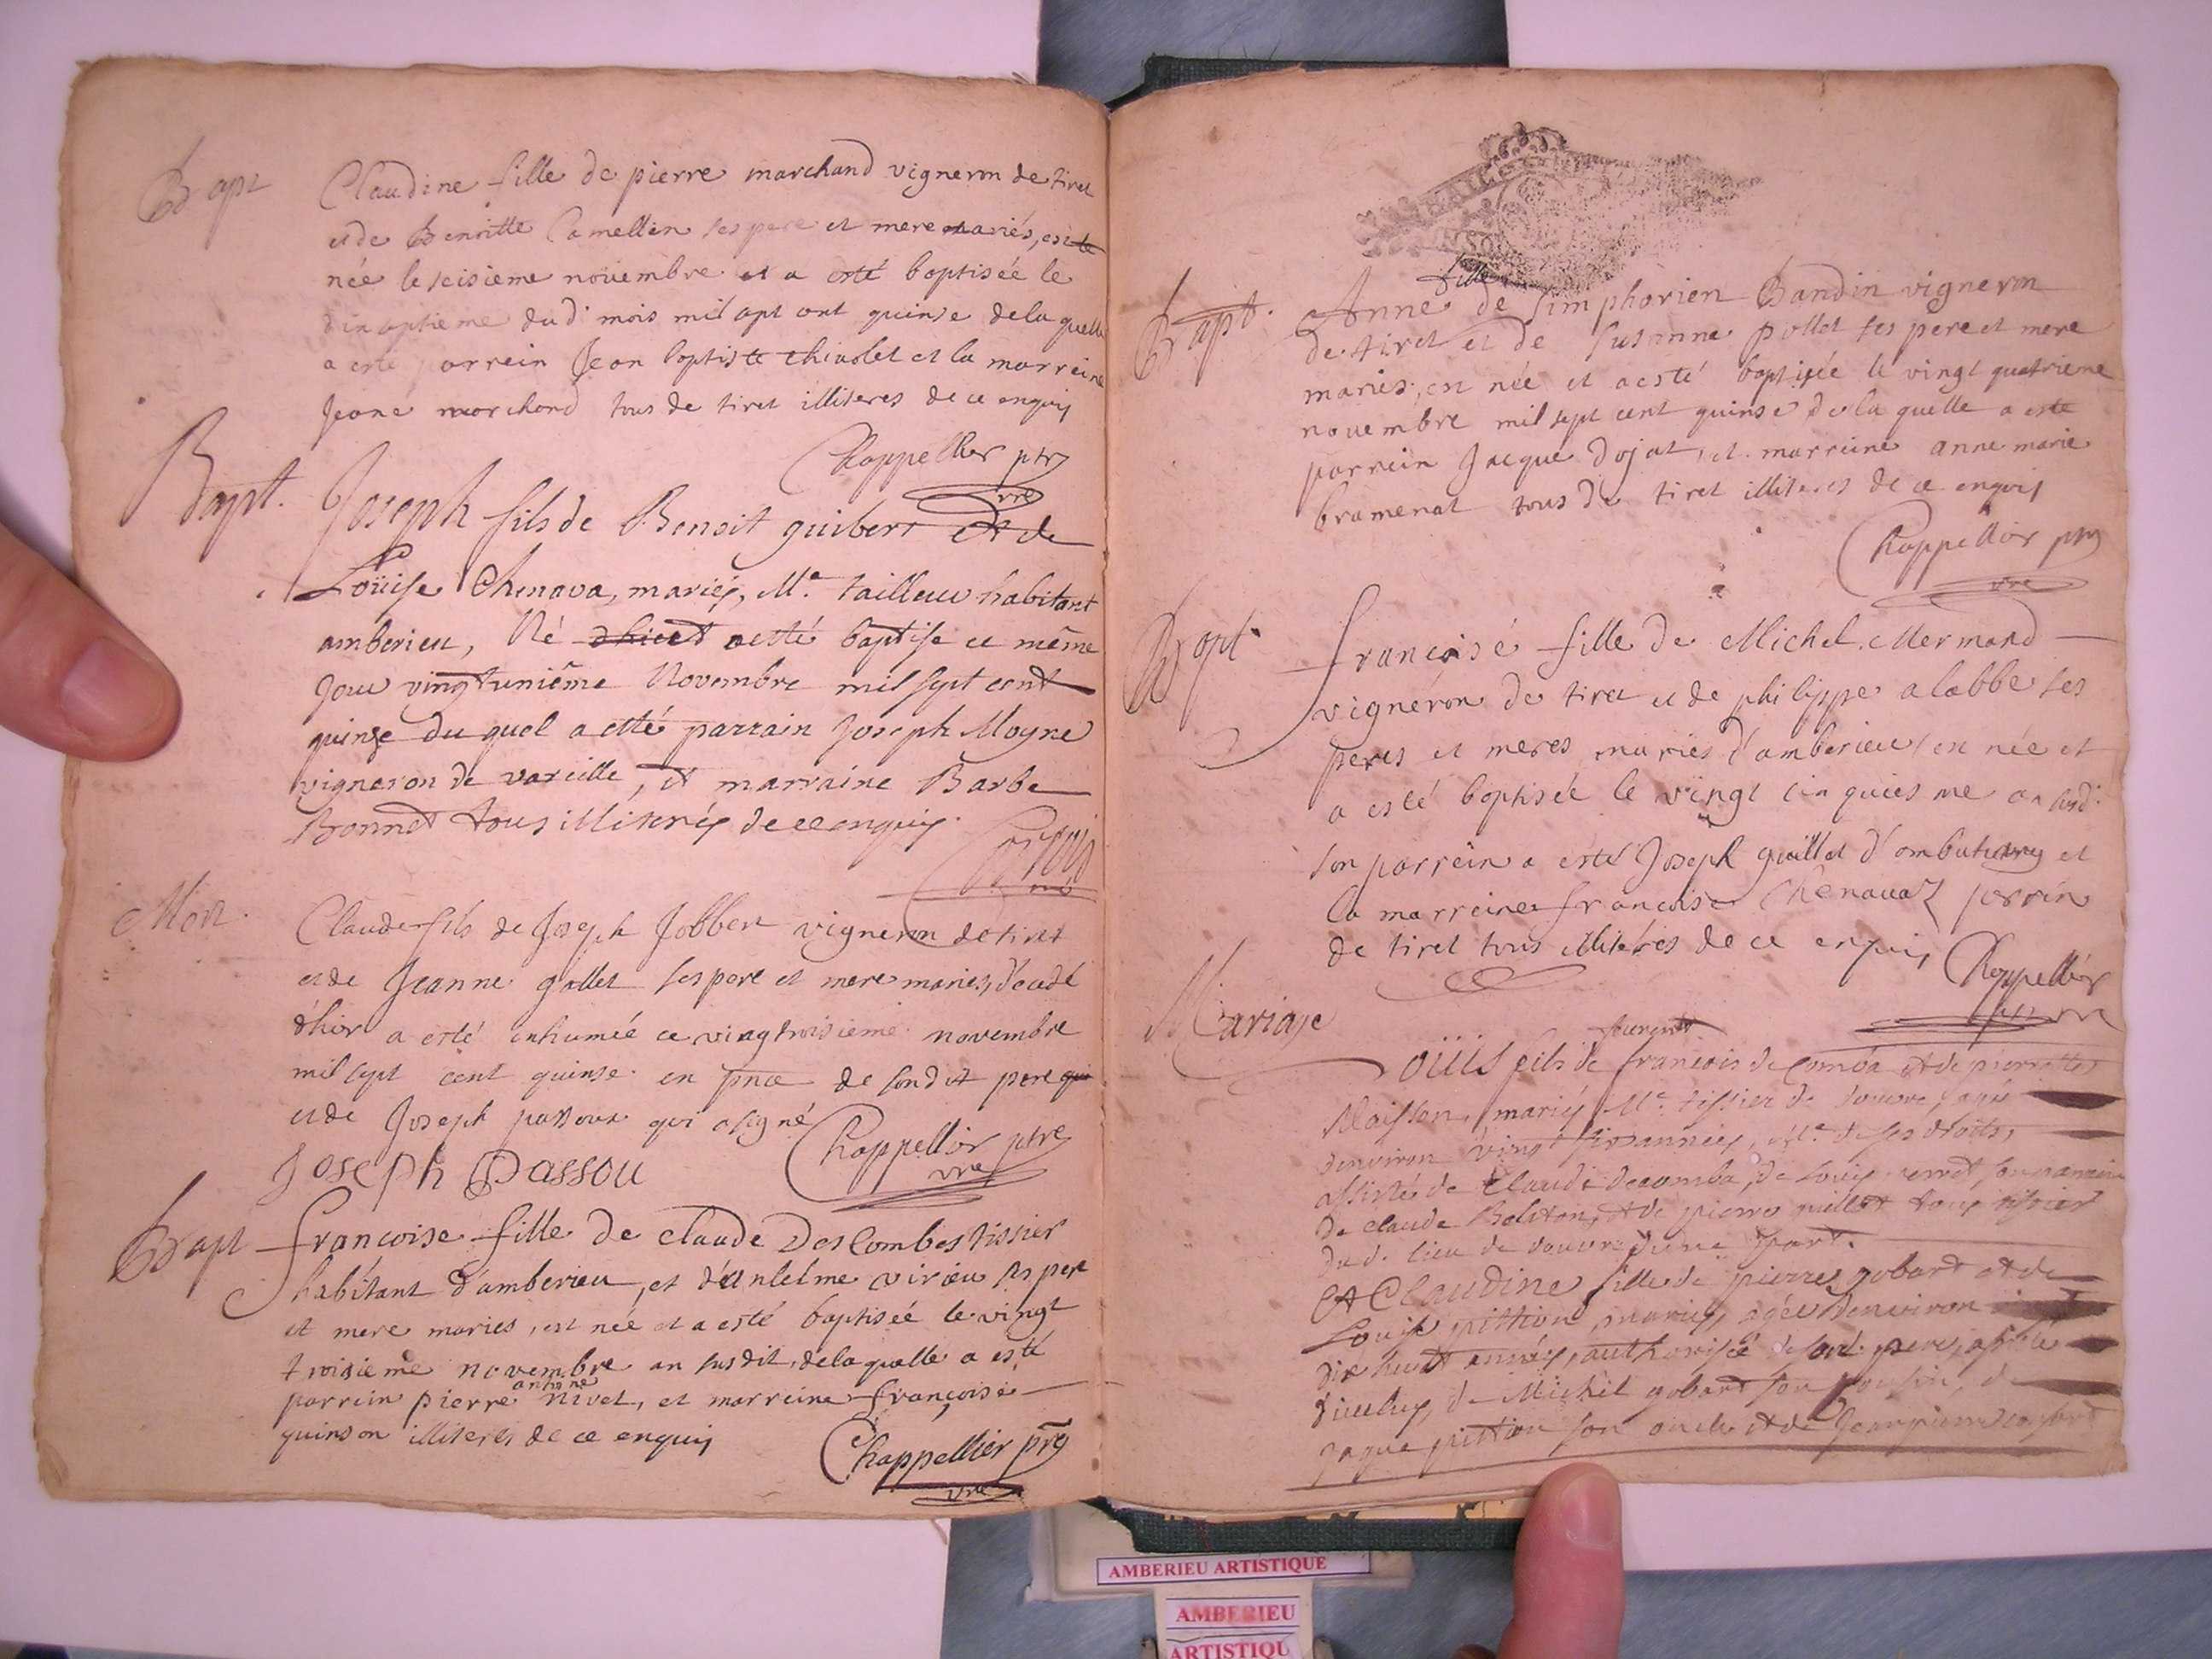 Bapt
Claudine fille de pierre marchand vigneron de tiret
et de Benoitte Camellin ses pere et mere mariés, est
née le seisieme novembre et a esté baptisée le
dixseptieme dud. mois mil sept cent quinse de la quelle
a esté parrein Jean baptiste chivolet et la marreine
Jeane marchand tous de tiret illiteres de ce enquis
Chappellier ptre
vre
Bapt. Joseph fils de Benoit guibert et de
Louise Chenava, mariés, Me. tailleur habitant
amberieu, Né a esté baptisé ce même
jour vingtuniême Novembre mil sept cent
quinze du quel a esté parrain Joseph Moyne
vigneron de vareille, et marraine Barbe
Bonnet tous illiterés de ce enquis.
Mort.
Claude fils de Joseph Jobbert vigneron de tiret
et de Jeanne gollet ses pere et mere maries, décedé
d'hier a esté enhumée ce vingtroisieme novembre
mil sept cent quinse en pnce de sondit pere
et de Joseph passoux qui a signé
Chappellier ptre
vre
Joseph Passou
Bapt francoise fille de claude Des Combes tissier
habitant d'amberieu, et d'Anlelme virieu ses pere
et mere maries, est née et a esté baptisée le vingt
troisieme novembre an susdit, de la quelle a esté
parrein pierre antoine nivet, et marreine françoise
quinson illiteres de ce enquis
Chappellier ptre
vre
Bapt.
fille
Anne de simphorien Bandin vigneron
de tiret et de susanne pollet ses pere et mere
maries, est née et a esté baptisée le vingt quatrieme
novembre mil sept cent quinse de la quelle a esté
parrein Jacque dojat, et marreine anne marie
bramenat tous de tiret illiteres de ce enquis
Chappellier ptre
vre
Bapt
françoise fille de Michel Mermand
vigneron de tiret et de philippe alabbe ses
peres et meres mariés d'amberieu, est née et
a esté baptisée le vingt cinquiesme an susd.
son parrein a esté Joseph guillot d'ambutrix et
la marreine françoise Chenavaz perrin
de tiret tous illitéres de ce enquis
Chappellier
ptre vre
Mariage
Loüis fils de françois de Comba et de pierrette
Maisson, mariés Me. tissier de douvre, agé
denviron vingt années, Me. de ses droits,
assisté de Claude decomba, de Louis
De claude et de pierre tous tissier
dud. lieu de douvre dune part.
Et Claudine fille de pierre gobart et de
Louise pittion, mariés, agée denviron
dix huit années, authorisée de son pere, assisté
d'iceluy, de Michel gobart son cousin, de
Jaque pittion son oncle et de Jeanpierre gobart
AMBERIEU ARTISTIQUE
AMBERIEU
ARTISTIQU